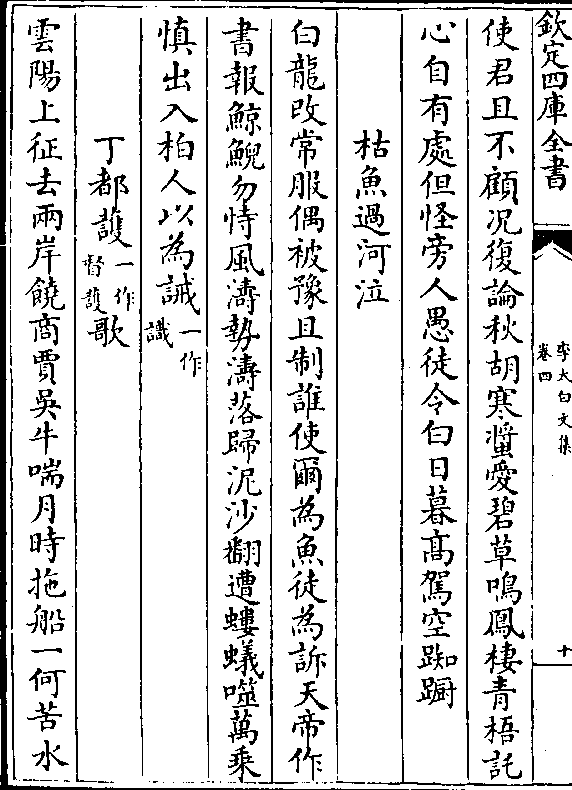 欽定四庫全書
李太白文集
卷四
十
使君且不顧况復論秋胡寒螿愛碧草鳴鳳棲青梧託
心自有處但怪旁人愚徒令白日暮髙駕空踟蹰
枯魚過河泣
白龍改常服偶被豫且制誰使爾為魚徒為訴天帝作
書報鯨鯢勿恃風濤勢濤落歸泥沙翻遭螻蟻噬萬乘
慎出入柏人以為誡一作識
丁都護一作督護歌
雲陽上征去兩岸饒商賈吳牛喘月時拖船一何苦水